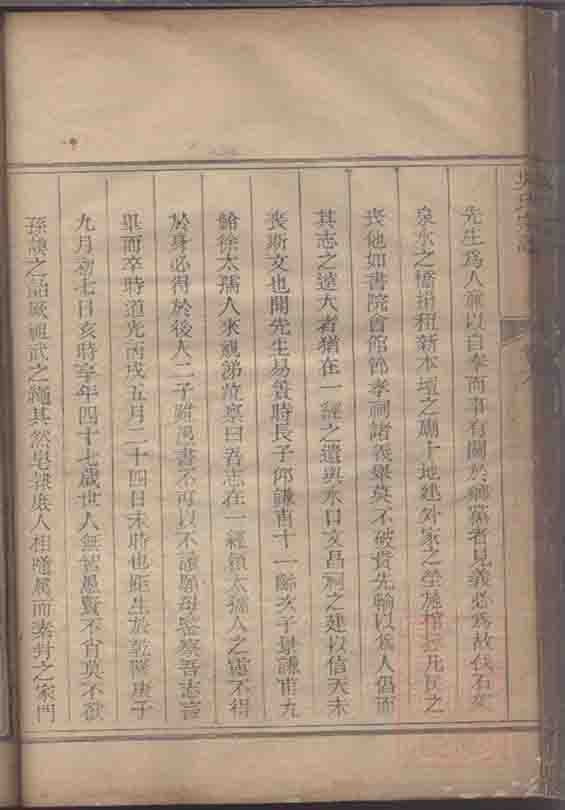 吳氏宗譜
先生爲人兼以自奉而事有關於鄉黨者見義必爲故伐石架
泉水之橋捐租新本壇之廟十地建外家之塋施棺凡民之
喪他如書院會館節孝祠諸義舉莫不破貲先輸以爲人倡而
其志之遠大者猶在一經之遺與水口文昌祠之建以信天未
喪斯文也聞先生易簀時長子印謙甫十一齡次子景謙甫九
齡徐太孺人來視涕泣稟曰吾志在一經願太孺人之憲不得
於身必得於後人二子雖渴書不可以不讀願母鑒察吾志言
畢而卒時道光丙戌五月二十四日未時也距生於乾隆庚子
九月初七日亥時享年四十七歲世人無智愚賢不肖莫不欲
孫謀之詒厥祖武之繩其然皂隸底人相隨屬而素封之家門